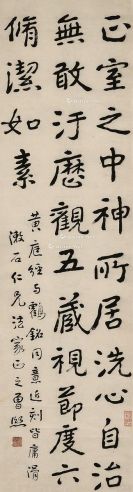 正室之中神所居洗心自治
無敢汙歷觀五藏視節度六
脩潔如素
黃庭經与鶴銘同意近刻皆庸滑
漱石仁兄法家正之曾熙